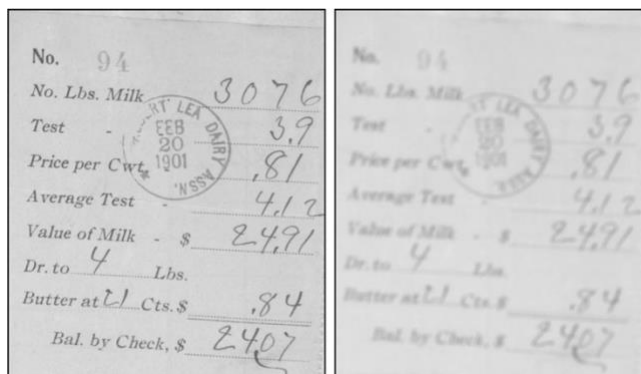 No. 94
No. Lbs. Milk 3076
Test - 3.9
Price per Cwt. .81
Average Test - 4.12
Value of Milk - $ 24.91
Dr. to 4 Lbs.
Butter at 21 Cts. $ .84
Bal. by Check, $ 2407
LEA DAIRY ASSN.
FEB
20
1901
No. 94
No. Lbs. Milk 3076
Test - 3.9
Price per Cwt. .81
Average Test - 4.12
Value of Milk - $ 24.91
Dr. to 4 Lbs.
Butter at 21 Cts. $ .84
Bal. by Check, $ 2407
LEA DAIRY ASSN.
FEB
20
1901